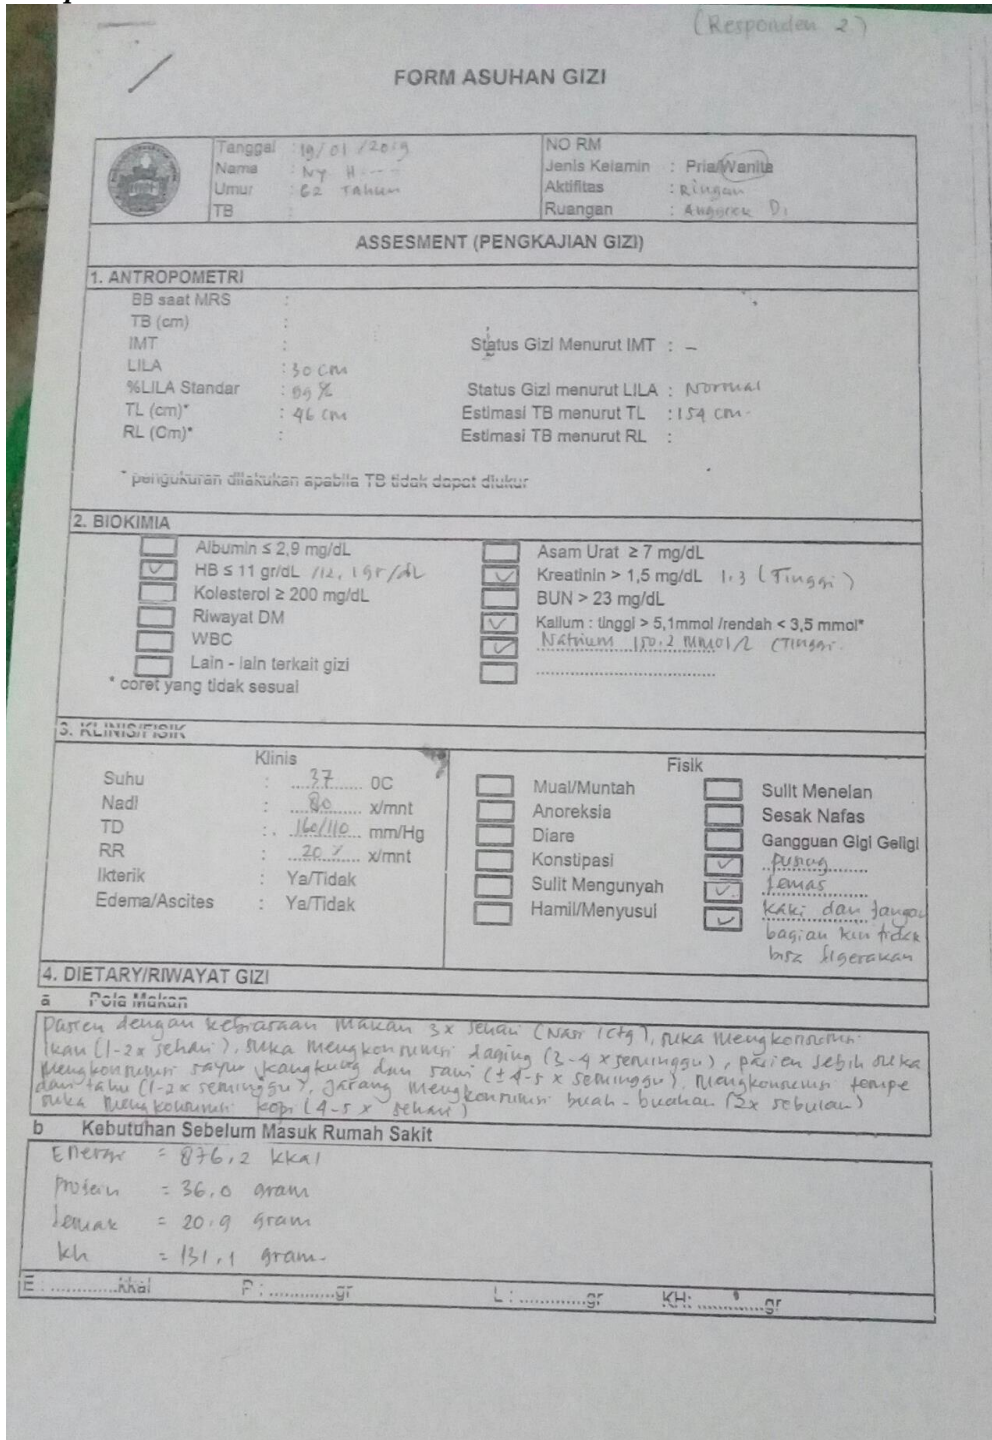 (Responden 2)
FORM ASUHAN GIZI
Tanggal : 19/01/2019
Nama : Ny H ---
Umur : 62 Tahun
TB :
NO RM
Jenis Kelamin : Pria/Wanita
Aktifitas : Ringan
Ruangan : Anggrek D1
ASSESMENT (PENGKAJIAN GIZI)
1. ANTROPOMETRI
BB saat MRS :
TB (cm) :
IMT : Status Gizi Menurut IMT : -
LILA : 30 cm
%LILA Standar : 99 % Status Gizi menurut LILA : Normal
TL (cm)* : 46 cm Estimasi TB menurut TL : 154 cm.
RL (Cm)* : Estimasi TB menurut RL :
* pengukuran dilakukan apabila TB tidak dapat diukur
2. BIOKIMIA
Albumin ≤ 2,9 mg/dL
HB ≤ 11 gr/dL /12,1 gr/dL
Kolesterol ≥ 200 mg/dL
Riwayat DM
WBC
Lain - lain terkait gizi
* coret yang tidak sesuai
Asam Urat ≥ 7 mg/dL
Kreatinin > 1,5 mg/dL 1,3 (Tinggi)
BUN > 23 mg/dL
Kalium : tinggi > 5,1mmol /rendah < 3,5 mmol*
Natrium 150.2 mmol/L (Tinggi.
....................................
3. KLINIS/FISIK
Klinis
Suhu : 37 0C
Nadi : 80 x/mnt
TD : 160/110 mm/Hg
RR : 20 x x/mnt
Ikterik : Ya/Tidak
Edema/Ascites : Ya/Tidak
Fisik
Mual/Muntah
Anoreksia
Diare
Konstipasi
Sulit Mengunyah
Hamil/Menyusui
Sulit Menelan
Sesak Nafas
Gangguan Gigi Geligi
pusing
lemas
kaki dan tangan
bagian kiri tidak
bisa digerakan
4. DIETARY/RIWAYAT GIZI
a Pola Makan
Pasien dengan kebiasaan makan 3x sehari (Nasi 1ctg), suka mengkonsumsi
ikan (1-2x sehari), suka mengkonsumsi daging (3-4 x seminggu), pasien lebih suka
mengkonsumsi sayur kangkung dan sawi (± 4-5 x seminggu), mengkonsumsi tempe
dan tahu (1-2x seminggu), jarang mengkonsumsi buah-buahan (2x sebulan)
suka mengkonsumsi kopi (4-5 x sehari)
b Kebutuhan Sebelum Masuk Rumah Sakit
Energi = 876,2 kkal
protein = 36,0 gram
lemak = 20.9 gram
kh = 131,1 gram.
E : .............kkal P : .............gr L : .............gr KH: .............gr